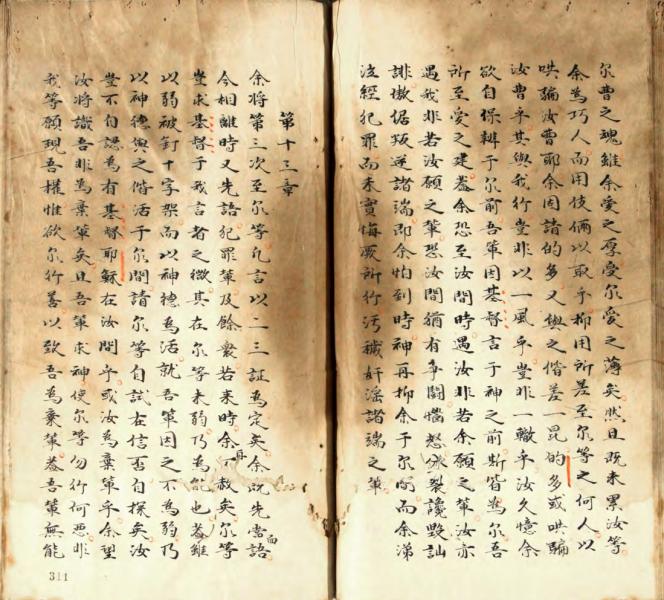 尔曹之魂雖余愛之厚受尔愛之薄矣然且既未累汝等
余為巧人而用伎倆以取乎抑用所差至尔等之何人以
哄騙汝曹耶余因諸的多又與之偕差一昆的多或哄騙
汝曹乎其與我行豈非以一風乎豈非一轍乎汝久憶余
欲自保辨于尔前吾軰因基督言于神之前斯皆為尔吾
所至愛之建葢余恐至汝間時遇汝非若余願之軰汝亦
遇我非若汝願之軰恐汝間猶有爭鬪惱怒分裂讒毀訕
誹傲倨叛逆諸端即余怕到時神再抑余于尔間而余涕
泣經犯罪而未實悔厥所行污穢奸滛諸端之軰
第十三章
余將第三次至尔等凢言以二三証為定矣余既先嘗語
今相離時又先語犯罪軰及餘衆若来時余再赦矣尔等
豈求基督于我言者之徵其在尔等未弱乃為能也葢雖
以弱被釘十字架而以神德為活就吾軰因之不為弱乃
以神德與之偕活于尔間請尔等自試在信否自探矣汝
豈不自認為有基督耶穌在汝間乎或汝為棄軰乎余望
汝將識吾非為棄軰矣且吾軰求神使尔等勿行何惡非
我等願現吾權惟欲尔行善以致吾為棄軰葢吾軰無能
面
311